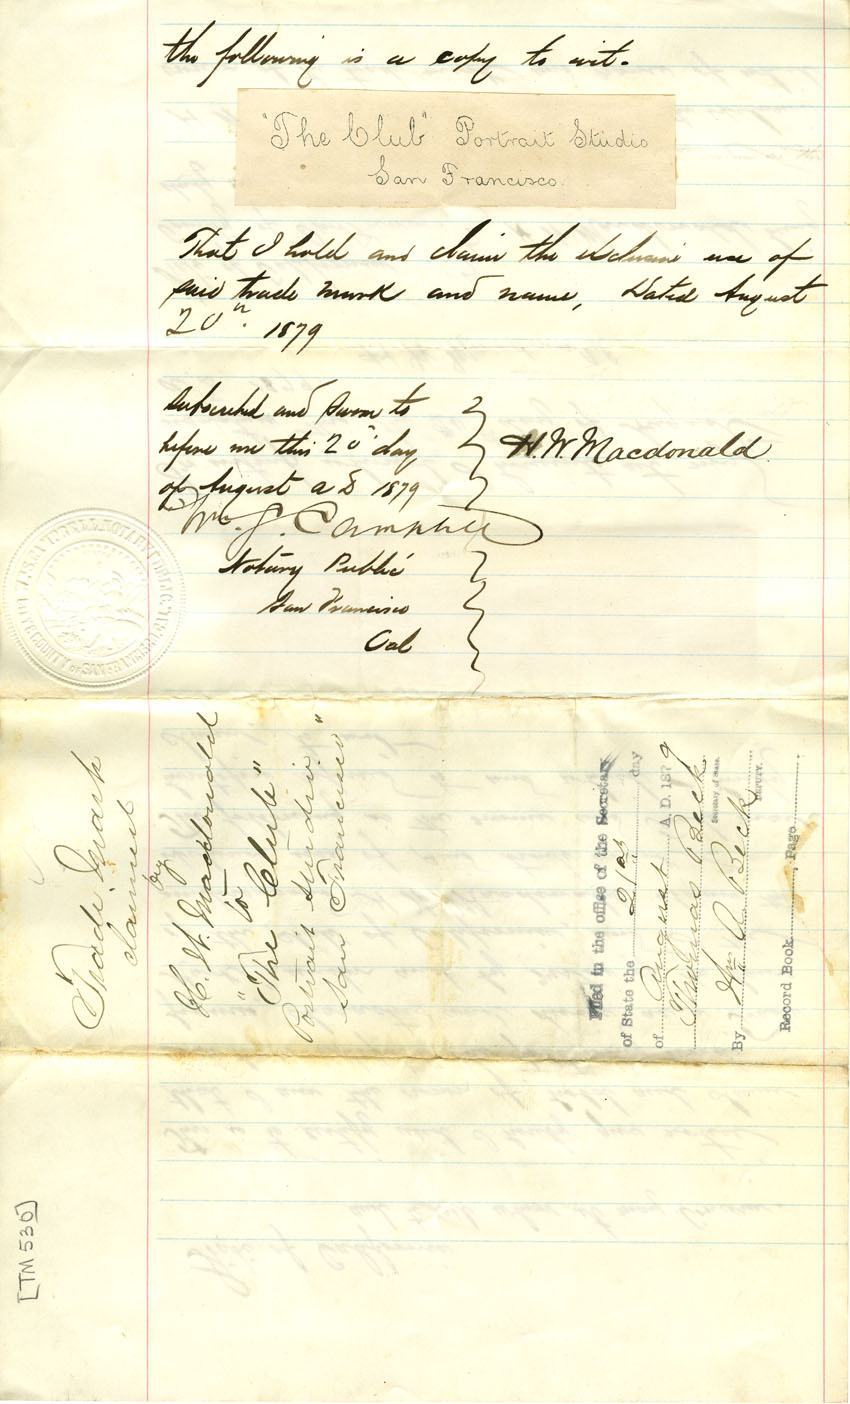 the following is a copy to wit.
"The Club" Portrait Studio
San Francisco.
That I hold and claim the exclusive use of
said trade mark and name, Dated August
20th. 1879
Subscribed and Sworn to
before me this 20th day
of August A D 1879
H. W. Macdonald.
Wm. J. Campbell
Notary Public
San Francisco
Cal
NOTARY PUBLIC
COUNTY OF SAN FRANCISCO, CAL.
Trade Mark
claimed
by
H. W. Macdonald
to
"The Club"
Portrait Studio.
San Francisco"
Filed in the office of the Secretary
of State the 21st day
of August A. D. 1879
Thomas Beck
Secretary of State.
By Wm A Beck
Deputy.
Record Book, Page
[TM 530]